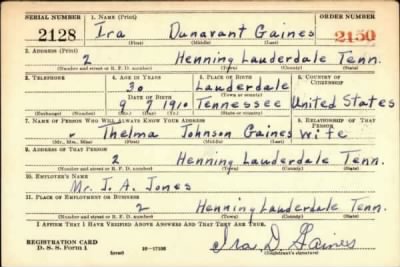 SERIAL NUMBER 1. NAME (Print) ORDER NUMBER
2128 Ira Dunavant Gaines 2150
(First) (Middle) (Last)
2. ADDRESS (Print)
2 Henning Lauderdale Tenn.
(Number and street or R. F. D. number) (Town) (County) (State)
3. TELEPHONE 4. AGE IN YEARS 5. PLACE OF BIRTH 6. COUNTRY OF CITIZENSHIP
30 Lauderdale
DATE OF BIRTH (Town or county)
9 7 1910 Tennessee United States
(Exchange) (Number) (Mo.) (Day) (Yr.) (State or country)
7. NAME OF PERSON WHO WILL ALWAYS KNOW YOUR ADDRESS 8. RELATIONSHIP OF THAT PERSON
Thelma Johnson Gaines Wife
(Mr., Mrs., Miss) (First) (Middle) (Last)
9. ADDRESS OF THAT PERSON
2 Henning Lauderdale Tenn.
(Number and street or R. F. D. number) (Town) (County) (State)
10. EMPLOYER'S NAME
Mr. I. A. Jones
11. PLACE OF EMPLOYMENT OR BUSINESS
2 Henning Lauderdale Tenn.
(Number and street or R. F. D. number) (Town) (County) (State)
I AFFIRM THAT I HAVE VERIFIED ABOVE ANSWERS AND THAT THEY ARE TRUE.
REGISTRATION CARD
D. S. S. Form 1 (over) 16—17105 Ira D. Gaines
(Registrant's signature)